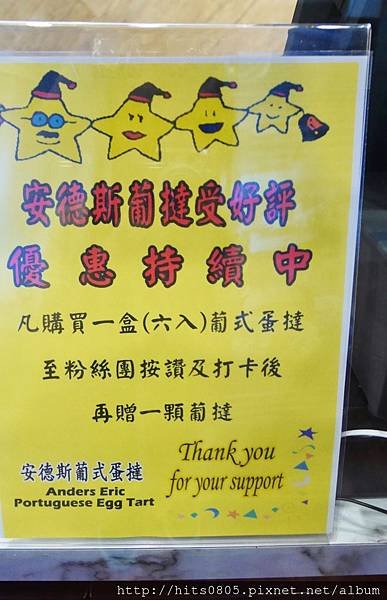 安德斯葡撻受好評
優惠持續中
凡購買一盒(六入)葡式蛋撻
至粉絲團按讚及打卡後
再贈一顆葡撻
安德斯葡式蛋撻
Anders Eric
Portuguese Egg Tart
Thank you
for your support
http://hits0805.pixnet.net/album